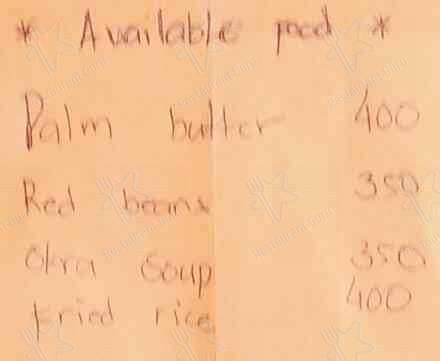 * Available food *
Palm butter 400
Red beans 350
Okra soup 350
fried rice 400